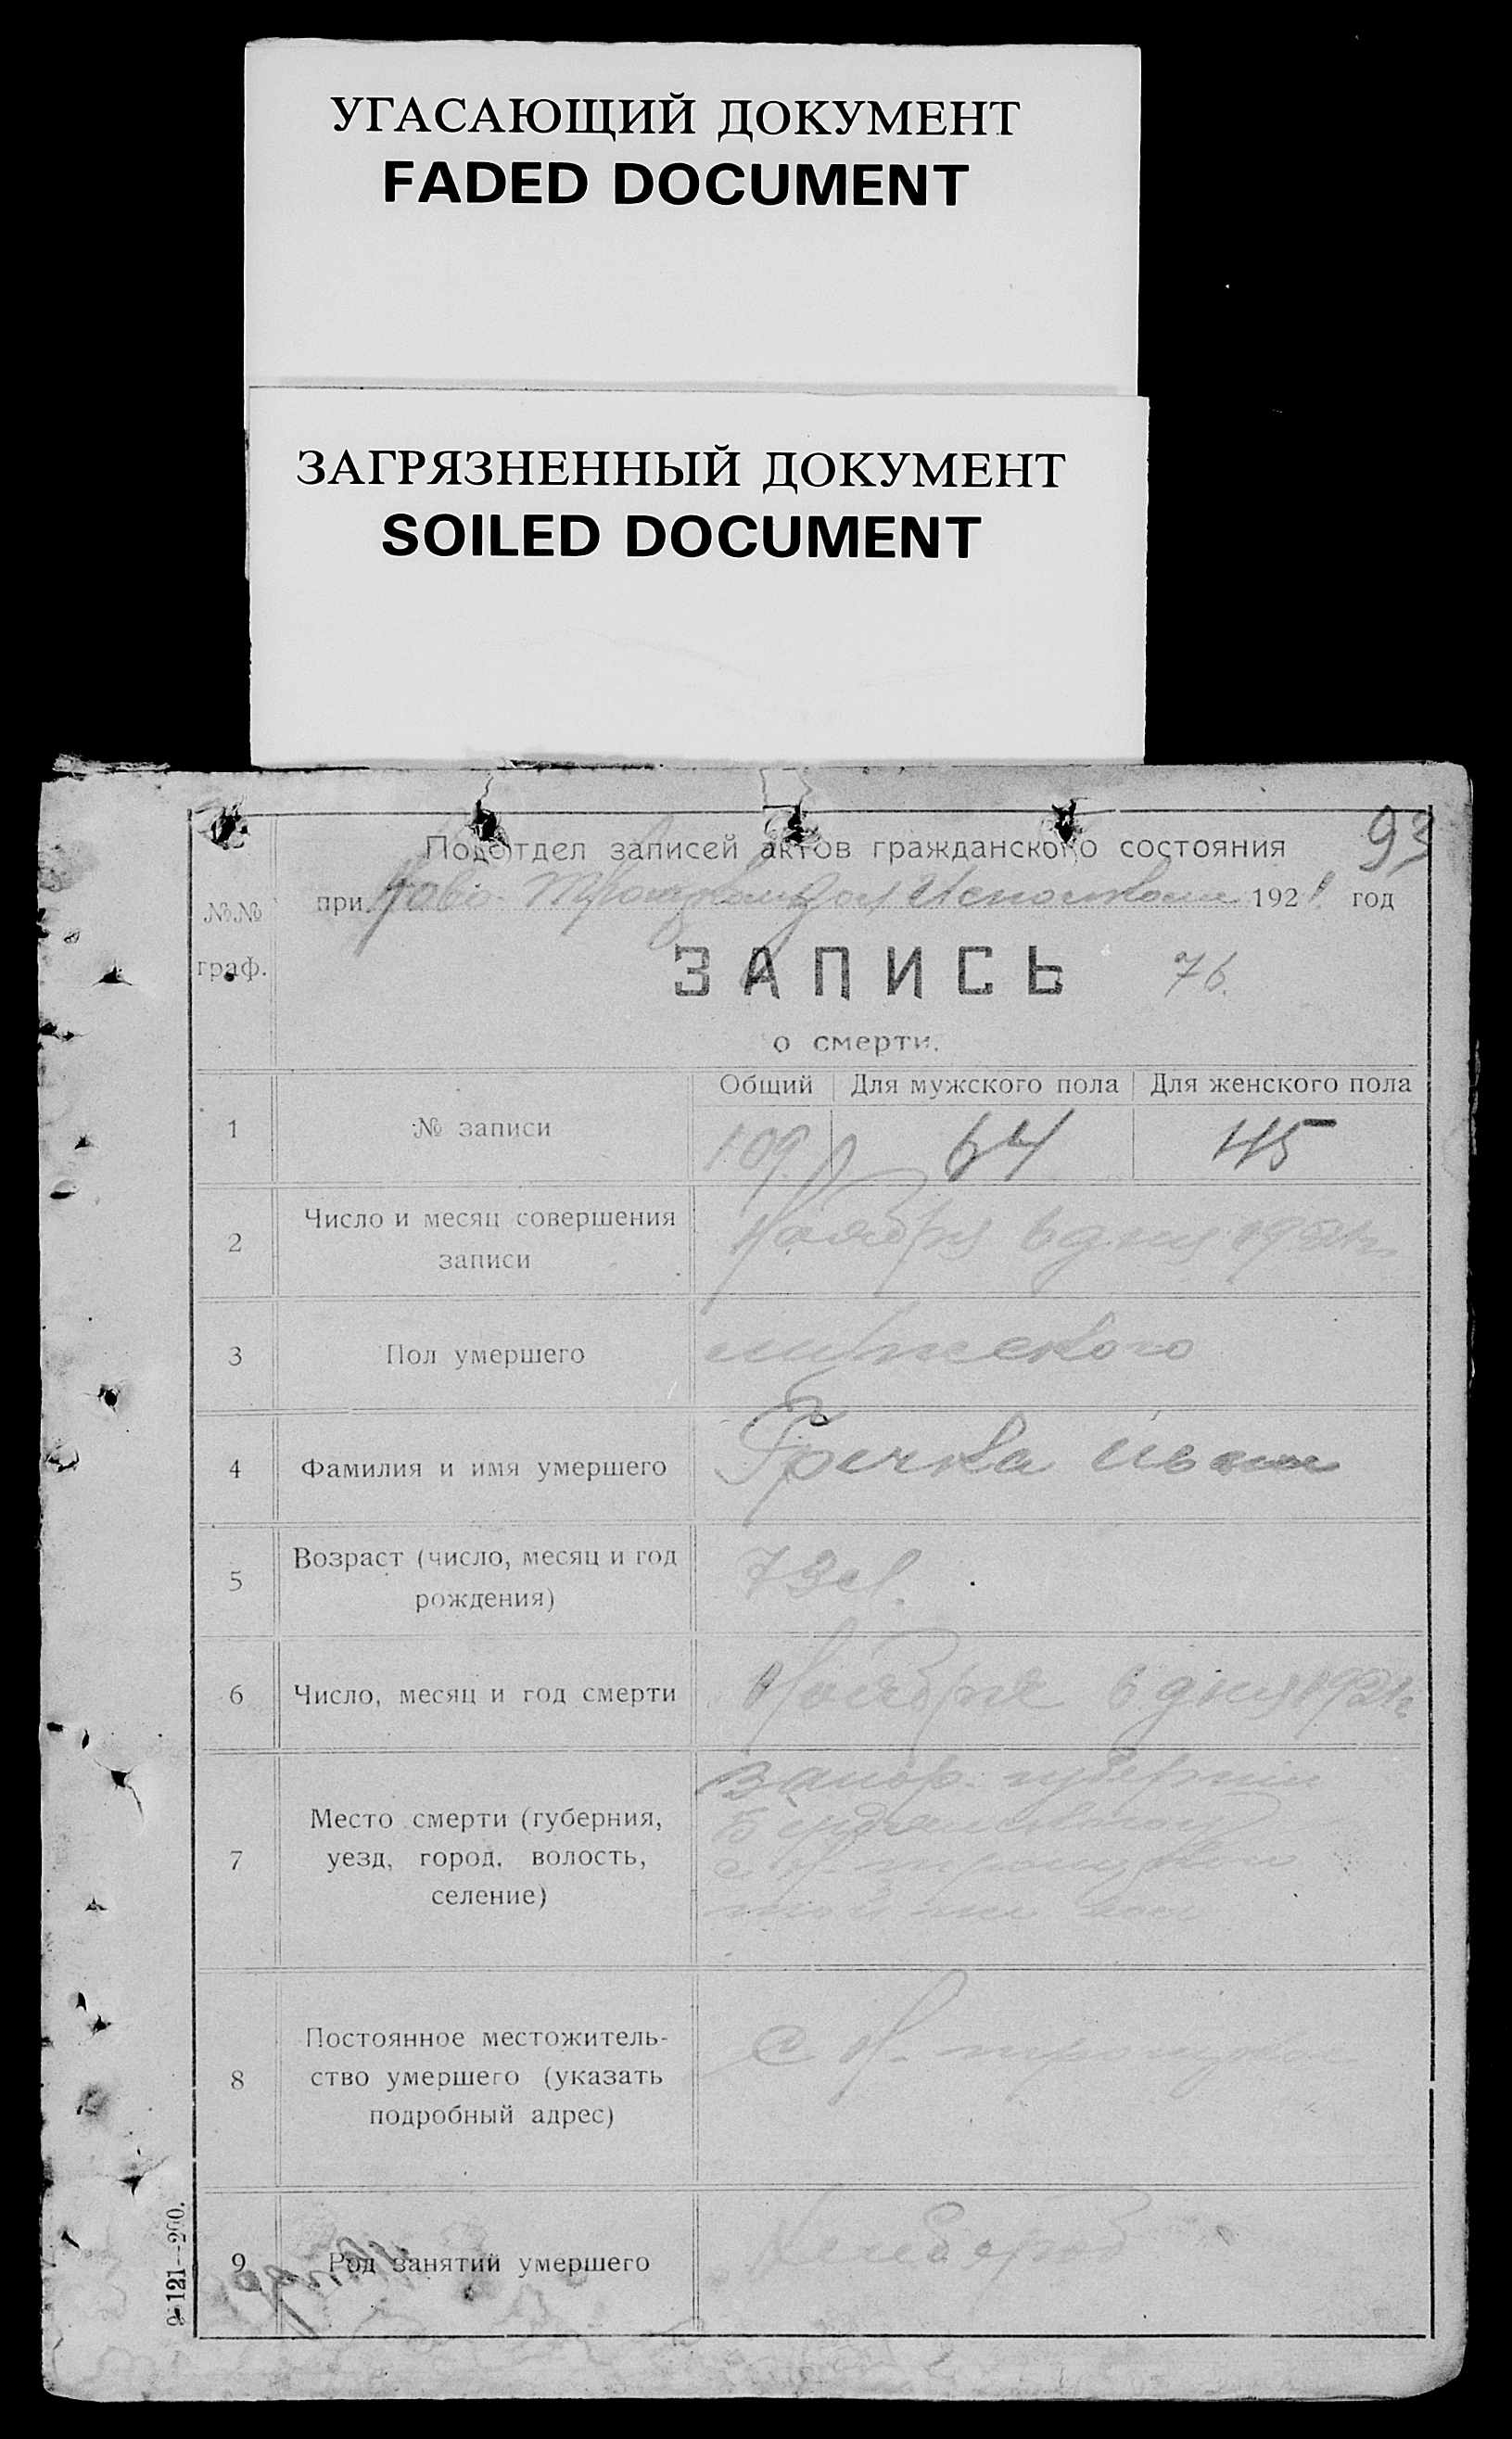 УГАСАЮЩИЙ ДОКУМЕНТ
FADED DOCUMENT
ЗАГРЯЗНЕННЫЙ ДОКУМЕНТ
SOILED DOCUMENT
93
Подотдел записей актов гражданского состояния
при Ново- Исполкоме 1921 год
№№
граф.
ЗАПИСЬ 76.
о смерти.
Общий Для мужского пола Для женского пола
1 № записи 109 64 45
Число и месяц совершения
2 Ноября 6 дня 1921 г.
записи
3 Пол умершего мужского
4 Фамилия и имя умершего Гречка Иван
Возраст (число, месяц и год
5 73 л.
рождения)
6 Число, месяц и год смерти Ноября 6 дня 1921 г.
Запор. губернии
Место смерти (губерния,
7 уезд, город, волость,
селение)
Постоянное местожитель-
8 ство умершего (указать с Н.
подробный адрес)
9 Род занятий умершего хлебороб
9-121—200.